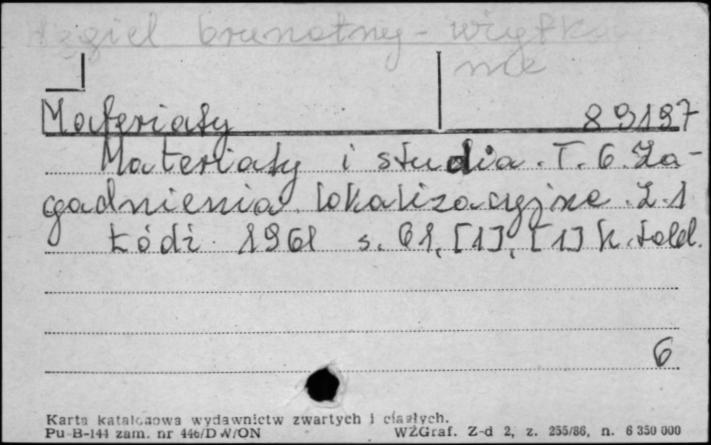 Węgiel brunatny - użytko
nie
Materiały 89197
Materiały i studia. T. 6. Za-
gadnienia lokalizacyjne. Z. 1
Łódź 1961 s. 61, [1], [1] k. tabl.
6
Karta katalogowa wydawnictw zwartych i ciągłych.
Pu-B-144 zam. nr 446/D W/ON WZGraf. Z-d 2, z. 255/86, n. 6 350 000